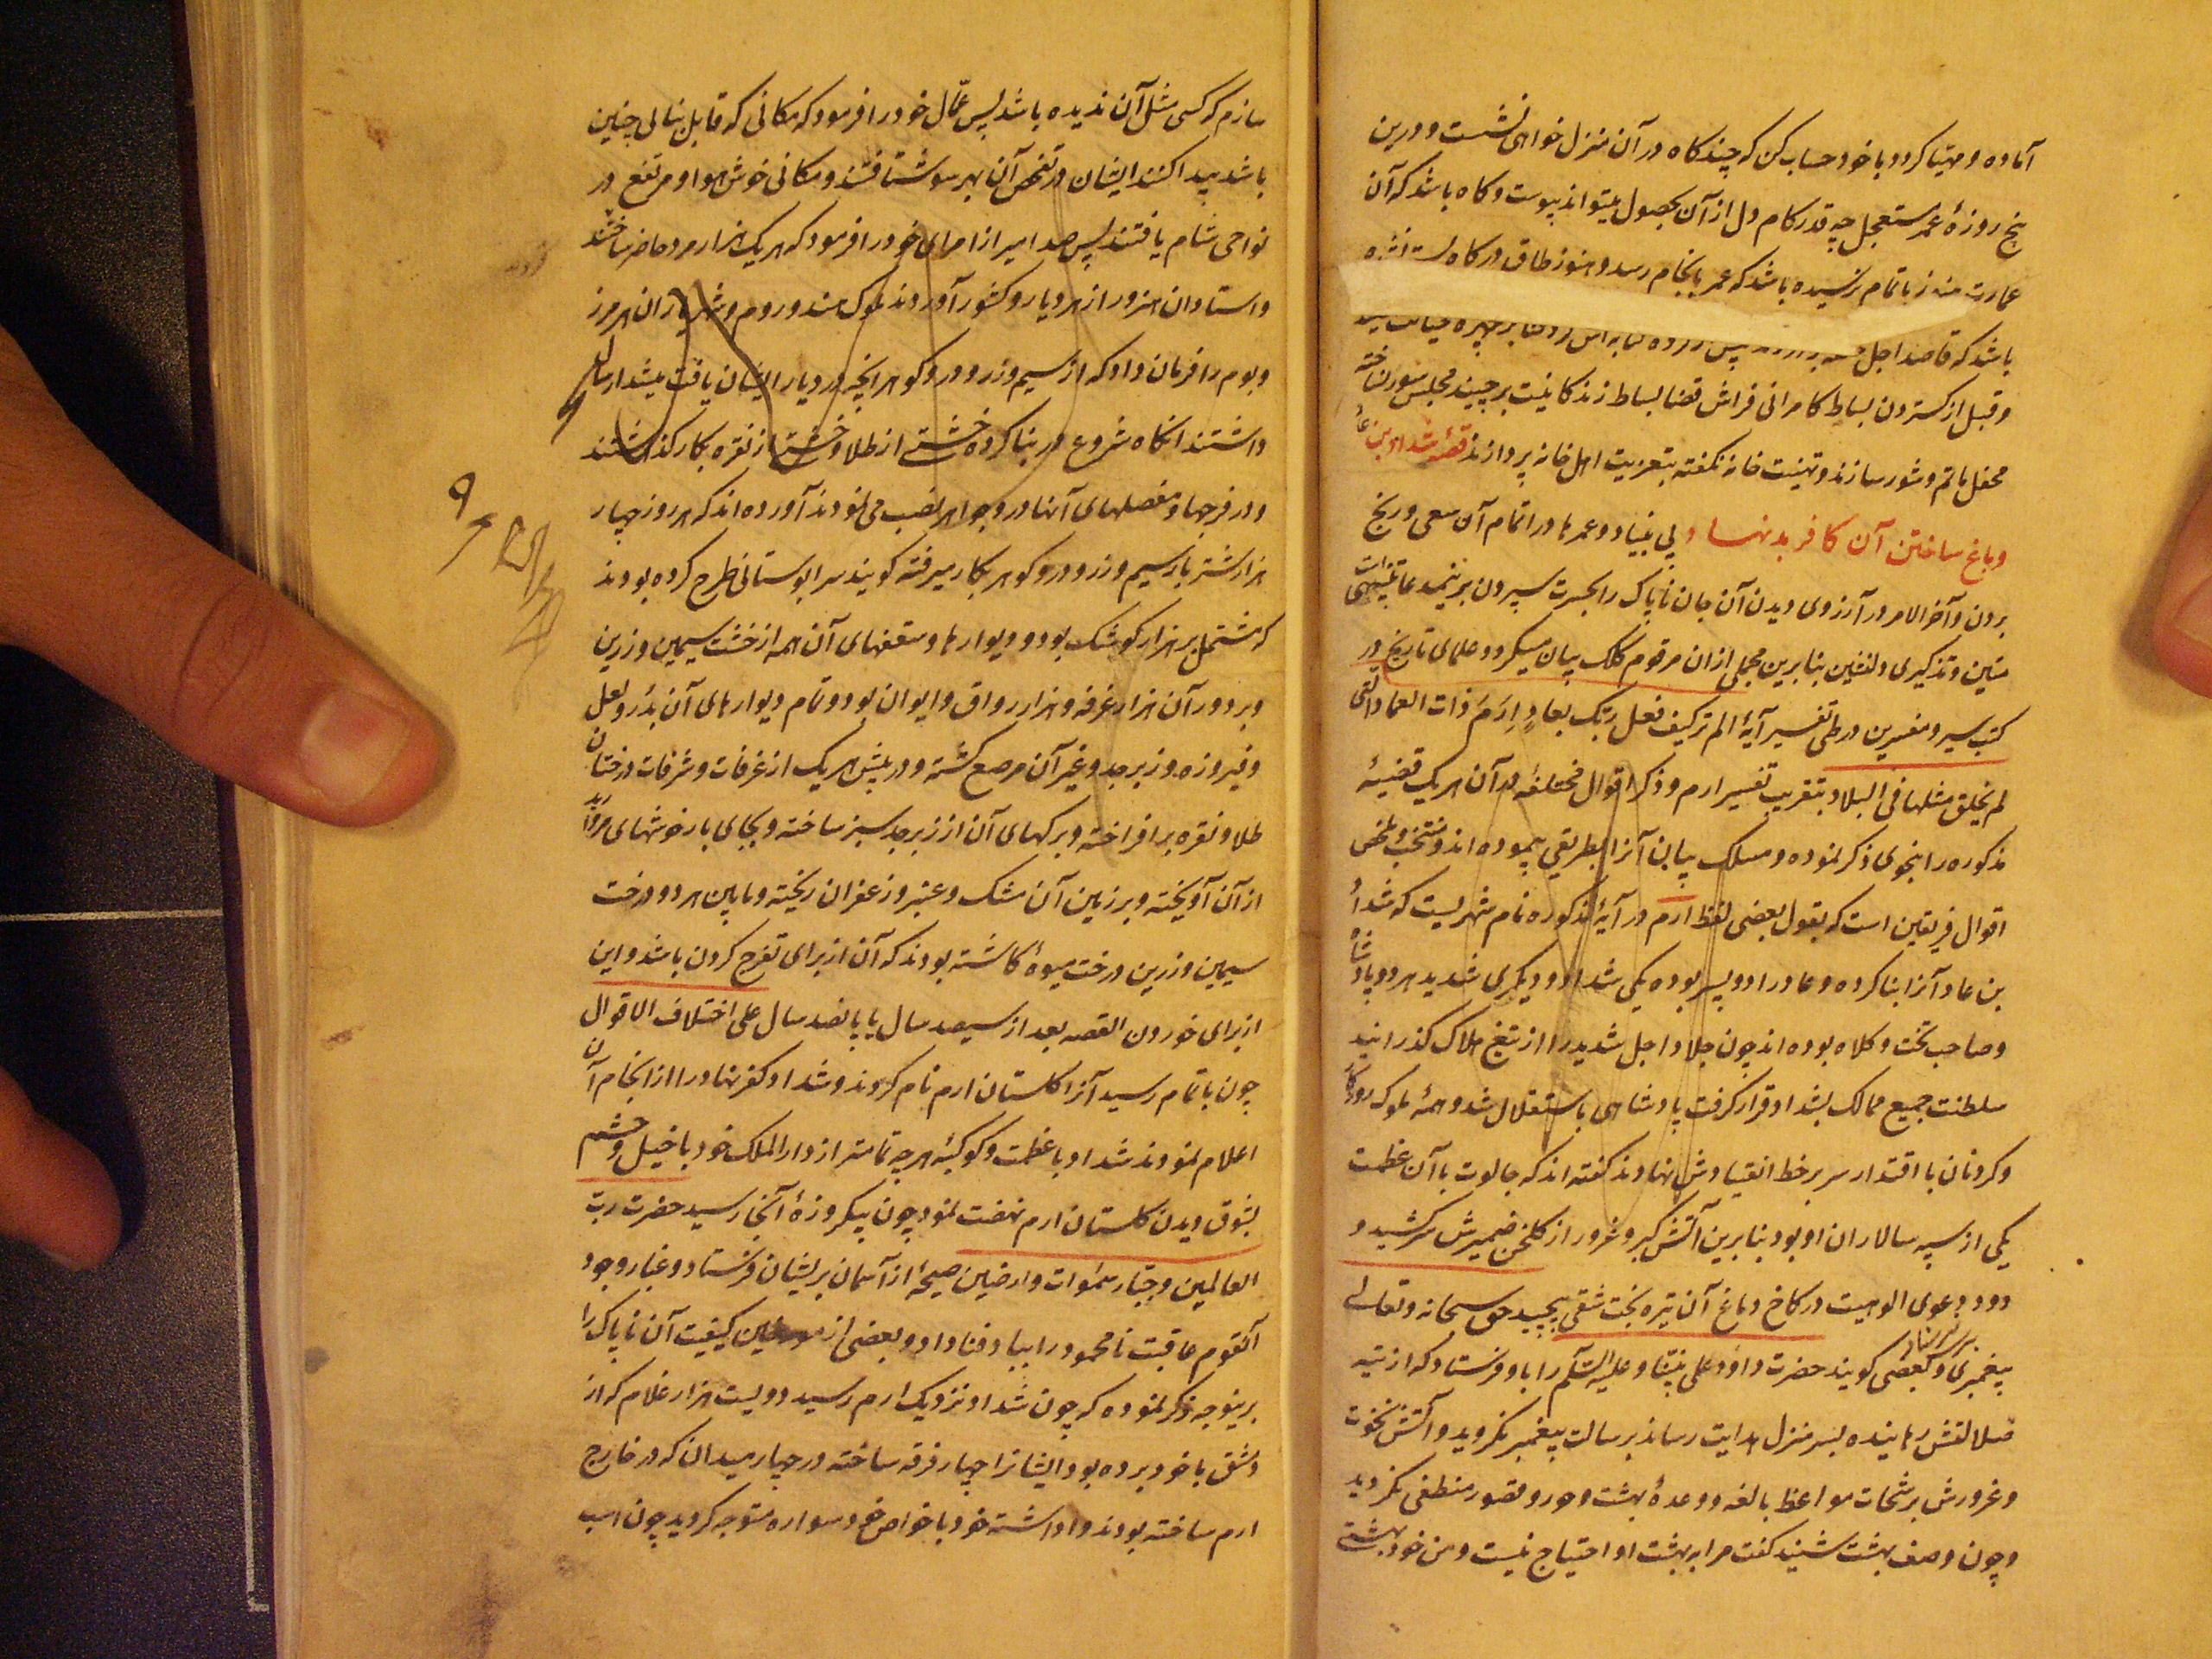 آماده و مهیا کرد و با خود حساب کن که چند گاه در آن منزل خواهی نشست و درین
پنج روزهٔ عمر مستعجل چه قدر کام دل از آن بحصول میتواند پیوست و گاه باشد که آن
عمارت هنوز باتمام نرسیده باشد که عمر بانجام رسد و هنوز طاق درگاه
باشد که قاصد اجل
و قبل از گستردن بساط کامرانی فراش قضا بساط زندگانیت برچیند مجلس سور ساخته
محفل ماتم و شور سازند و تهنیت خانه نگفته بتعزیت اهل خانه پردازند قصهٔ شداد بن عاد
و باغ ساختن آن کافر بدنهاد و بی بنیاد و عمرها در اتمام آن سعی و رنج
بردن و آخر الامر در آرزوی دیدن آن جان ناپاک را بحسرت سپردن
متین و تذکیری دلنشین بنابرین مجملی ازان مرقوم کلک بیان میگردد علمای تاریخ در
کتب سیر و مفسرین در طی تفسیر آیهٔ الم ترکیف فعل ربک بعادٍ اِرَمَ ذات العماد التی
لم یخلق مثلها فی البلاد بتقریب تفسیر ارم و ذکر اقوال مختلفه در آن هر یک قضیهٔ
مذکوره را بنحوی ذکر نموده و مسلک بیان آنرا بطریقی پیموده اند و منتخب و ملخص
اقوال فریقین است که بقول بعضی لفظ ارم در آیهٔ مذکوره نام شهریست که شداد
بن عاد آنرا بنا کرده و عاد را دو پسر بوده یکی شداد و دیگری شدید هر دو پادشاه
و صاحب تخت و کلاه بوده اند چون جلاد اجل شدید را از تیغ هلاک گذرانید
سلطنت جمیع ممالک بشداد قرار گرفت پادشاهی باستقلال شد و همهٔ ملوک روزگار
و گردنان با اقتدار سر بر خط انقیادش نهادند گفته اند که جالوت با آن عظمت
یکی از سپه سالاران او بود بنابرین آتش کبر و غرور از گلخن ضمیرش سر کشید و
دود دعوی الوهیت در کاخ دماغ آن تیره بخت شقی پیچید حق سبحانه و تعالی
پیغمبری و بعضی گویند حضرت داود علی نبینا و علیه السلام را باو فرستاد که از تیه
ضلالتش رهانیده بسر منزل هدایت رساند برسالت پیغمبر نگروید و آتش نخوت
و غرورش برشحات مواعظ بالغه و وعدهٔ بهشت و حور و قصور منطفی نگردید
و چون وصف بهشت شنید گفت مرا به بهشت او احتیاج نیست و من خود بهشتی
سازم که کسی مثل آن ندیده باشد پس عمّال خود را فرمود که مکانی که قابل بنائی چنین
باشد پیدا کنند ایشان در تفحص آن بهر سو شتافتند و مکانی خوش هوا و مرتفع در
نواحی شام یافتند پس صد امیر از امرای خود را فرمود که هر یک هزار مرد حاضر ساختند
و استادان هنرور از هر دیار و کشور آوردند ملوک هند و روم و شهریاران هر مرز
و بوم را فرمان داد که از سیم و زر و در و گوهر آنچه در دیار ایشان یافت میشد ارسال
داشتند آنگاه شروع در بنا کرده خشتی از طلا و خشتی از نقره بکار گذاشتند
و در فرجها و مفصلهای آنها در و جواهر نصب می نمودند آورده اند که هر روز چهار
هزار شتر بار سیم و زر و در و گوهر بکار میرفته گویند سرابوستانی طرح کرده بودند
که مشتمل بر هزار کوشک بود و دیوارها و سقفهای آن همه از خشت سیمین و زرین
و بر دور آن هزار غرفه و هزار رواق و ایوان بود و تمام دیوارهای آن بدُر و لعل
و فیروزه و زبرجد و غیر آن مرصع گشته و در پیش هر یک از غرفات و شرفات درختان
طلا و نقره برافراخته و برگهای آن از زبرجد سبز ساخته و بجای بار خوشهای مروارید
از آن آویخته و بر زمین آن مشک و عنبر و زعفران ریخته و مابین هر دو درخت
سیمین و زرین درخت میوهٔ کاشته بودند که آن از برای تفرج کردن باشد و این
از برای خوردن القصه بعد از سیصد سال یا پانصد سال علی اختلاف الاقوال
چون باتمام رسید آنرا گلستان ارم نام کردند و شداد کفر نهاد را از انجام آن
اعلام نمودند شداد با عظمت و کوکبهٔ هرچه تمامتر از دار الملک خود با خیل و حشم
بشوق دیدن گلستان ارم نهضت نمود چون بیکروزهٔ آنجا رسید حضرت ربّ
العالمین و جبّار سمٰوات و ارضین صیحهٔ از آسمان بر ایشان فرستاد و غبار وجود
آنقوم عاقبت نامحمود را بباد فنا داد و بعضی از مورخین کیفیت آن ناپاک را
برینوجه ذکر نموده که چون شداد نزدیک ارم رسید دویست هزار غلام که از
دمشق با خود برده بود ایشانرا چهار فرقه ساخته در چهار میدان که در خارج
ارم ساخته بودند واداشته خود با خواص خود سواره متوجه گردید چون اسب